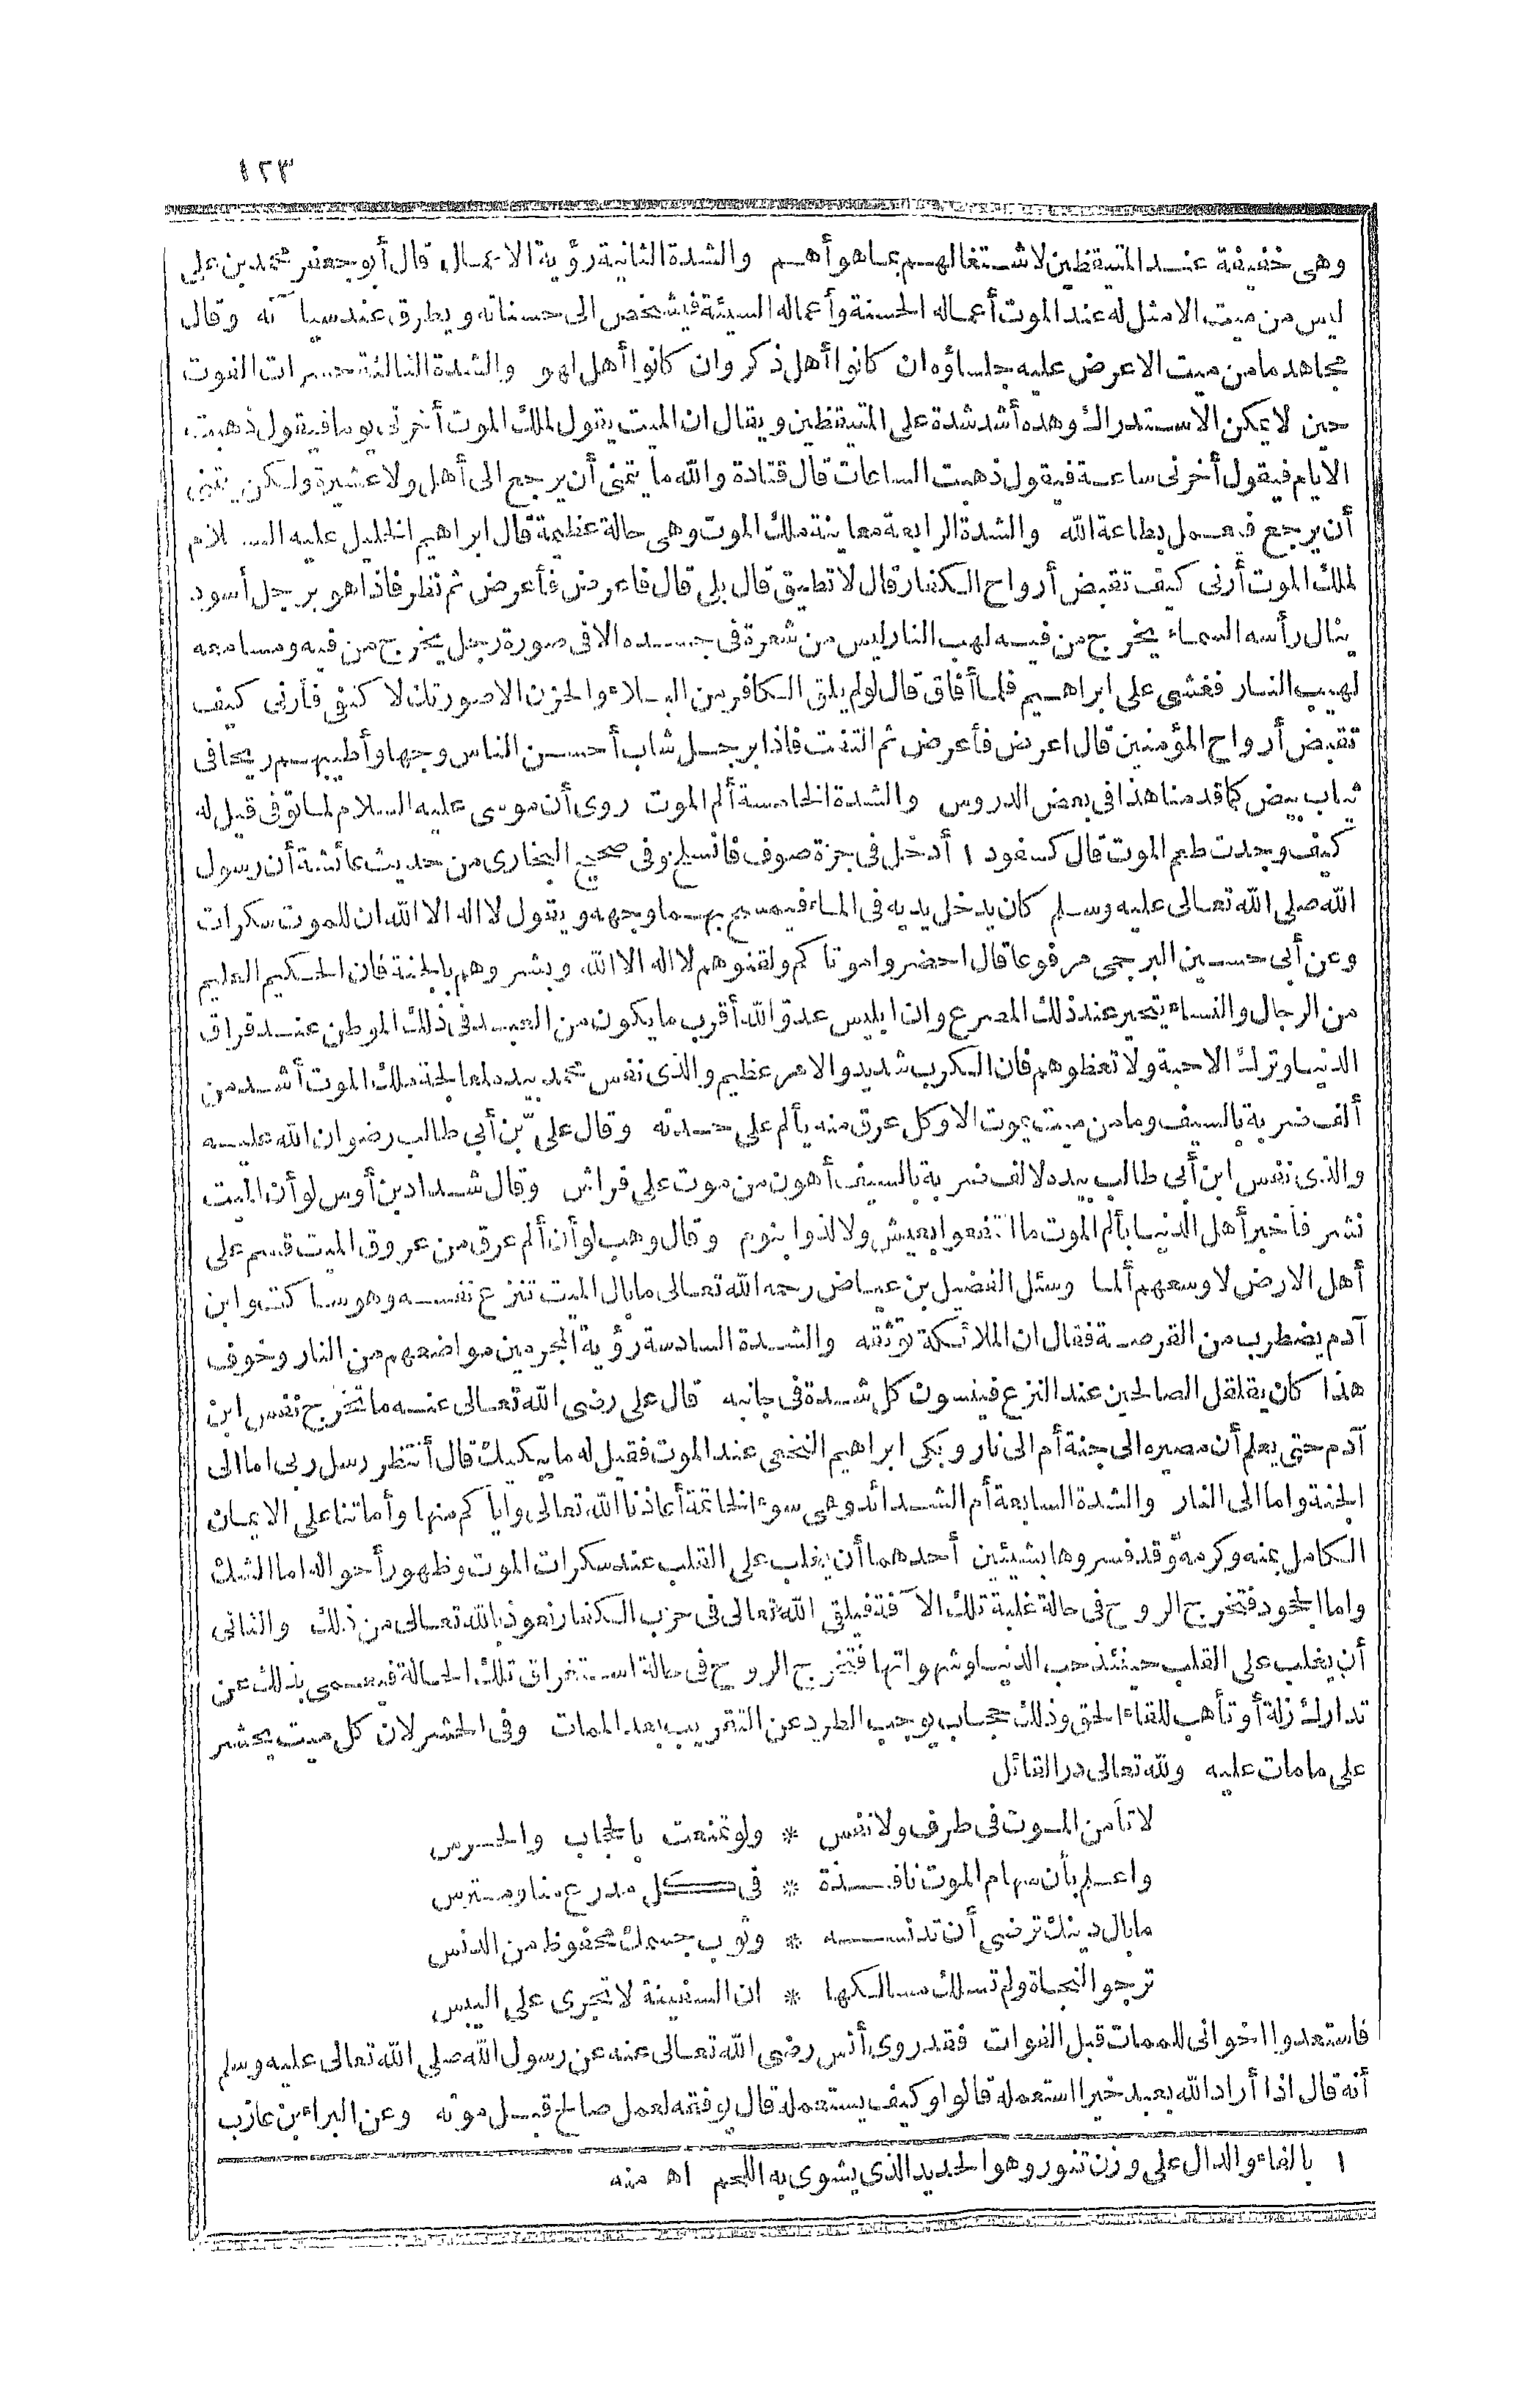 ١٢٣
وهى خفيفة عند المتيقظين لاشتغالهم بما هو أهم والشدة الثانية رؤية الاعمال قال أبو جعفر محمد بن على
ليس من ميت الا مثل له عند الموت أعماله الحسنة وأعماله السيئة فيشخص الى حسناته ويطرق عند سيا آته وقال
مجاهد ما من ميت الا عرض عليه جلساؤه ان كانوا أهل ذكر وان كانوا أهل لهو والشدة الثالثة حسرات الفوت
حين لا يمكن الاستدراك وهذه أشد شدة على المتيقظين ويقال ان الميت يقول لملك الموت أخرنى يوما فيقول ذهبت
الايام فيقول أخرنى ساعة فيقول ذهبت الساعات قال قتادة والله ما يتمنى أن يرجع الى أهل ولا عشيرة ولكن يتمنى
أن يرجع فيعمل بطاعة الله والشدة الرابعة معاينة ملك الموت وهى حالة عظيمة قال ابراهيم الخليل عليه السلام
لملك الموت أرنى كيف تقبض أرواح الكفار قال لا تطيق قال بلى قال فاعرض فأعرض ثم نظر فاذا هو برجل أسود
ينال رأسه السماء يخرج من فيه لهب النار ليس من شعرة فى جسده الا فى صورة رجل يخرج من فيه ومسامعه
لهيب النار فغشى على ابراهيم فلما أفاق قال لو لم يلق الكافر من البلاء والحزن الا صورتك لا كتفى فأرنى كيف
تقبض أرواح المؤمنين قال اعرض فأعرض ثم التفت فاذا برجل شاب أحسن الناس وجها وأطيبهم ريحا فى
ثياب بيض كما قدمنا هذا فى بعض الدروس والشدة الخامسة ألم الموت روى أن موسى عليه السلام لما توفى قيل له
كيف وجدت طعم الموت قال كسفود ١ أدخل فى جزة صوف فانسلخ وفى صحيح البخارى من حديث عائشة أن رسول
الله صلى الله تعالى عليه وسلم كان يدخل يديه فى الماء فيمسح بهما وجهه ويقول لا اله الا الله ان للموت سكرات
وعن أبى حسين البرجمى مرفوعا قال احضروا موتا كم ولقنوهم لا اله الا الله وبشروهم بالجنة فان الحكيم العليم
من الرجال والنساء يتحير عند ذلك المصرع وان ابليس عدو الله أقرب ما يكون من العبد فى ذلك الموطن عند فراق
الدنيا وترك الاحبة ولا تعظوهم فان الكرب شديد والامر عظيم والذى نفس محمد بيده لمعالجة ملك الموت أشد من
ألف ضربة بالسيف وما من ميت يموت الا وكل عرق منه يألم على حدته وقال علىّ بن أبى طالب رضوان الله عليه
والذى نفس ابن أبى طالب بيده لالف ضربة بالسيف أهون من موت على فراش وقال شداد بن أوس لو أن الميت
نشر فأخبر أهل الدنيا بألم الموت ما انتفعوا بعيش ولا لذوا بنوم وقال وهب لو أن ألم عرق من عروق الميت قسم على
أهل الارض لاوسعهم ألما وسئل الفضيل بن عياض رحمه الله تعالى ما بال الميت تنزع نفسه وهو ساكت وابن
آدم يضطرب من القرصة فقال ان الملائكة توثقه والشدة السادسة رؤية المجرمين مواضعهم من النار وخوف
هذا كان يقلقل الصالحين عند النزع فينسون كل شدة فى جانبه قال على رضى الله تعالى عنه ما تخرج نفس ابن
آدم حتى يعلم أن مصيره الى جنة أم الى نار وبكى ابراهيم النخعى عند الموت فقيل له ما يبكيك قال أنتظر رسل ربى اما الى
الجنة واما الى النار والشدة السابعة أم الشدائد وهى سوء الخاتمة أعاذنا الله تعالى وايا كم منها وأماتنا على الايمان
الكامل بمنه وكرمه وقد فسروها بشيئين أحدهما أن يغلب على القلب عند سكرات الموت وظهور أحواله اما الشك
واما الجحود فتخرج الروح فى حالة غلبة تلك الا فة فيلقى الله تعالى فى حزب الكفار نعوذ بالله تعالى من ذلك والثانى
أن يغلب على القلب حينئذ حب الدنيا وشهواتها فتخرج الروح فى حالة استغراق تلك الحالة فيعمى بذلك عن
تدارك زلة أو تأهب للقاء الحق وذلك حجاب يوجب الطرد عن التقريب بعد الممات وفى الحشر لان كل ميت يحشر
على ما مات عليه ولله تعالى در القائل
لا تأمن الموت فى طرف ولا نفس * ولو تمنعت بالحجاب والحرس
واعلم بأن سهام الموت نافذة * فى كل مدرع منا ومترس
ما بال دينك ترضى أن تدنسه * وثوب جسمك محفوظ من الدنس
ترجو النجاة ولم تسلك مسالكها * ان السفينة لا تجرى على اليبس
فاستعدوا اخوانى للممات قبل الفوات فقد روى أنس رضى الله تعالى عنه عن رسول الله صلى الله تعالى عليه وسلم
أنه قال اذا أراد الله بعبد خيرا استعمله قالوا وكيف يستعمله قال يوفقه لعمل صالح قبل موته وعن البراء بن عازب
١ بالفاء والدال على وزن تنور وهو الحديد الذى يشوى به اللحم اه منه